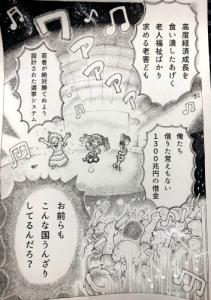 高度経済成長を
食い潰したあげく
老人福祉ばかり
求める老害ども
若者が絶対勝てぬよう
設計された選挙システム
俺たち
借りた覚えもない
1300兆円の借金
お前らも
こんな国うんざり
してるんだろ?
アアアア